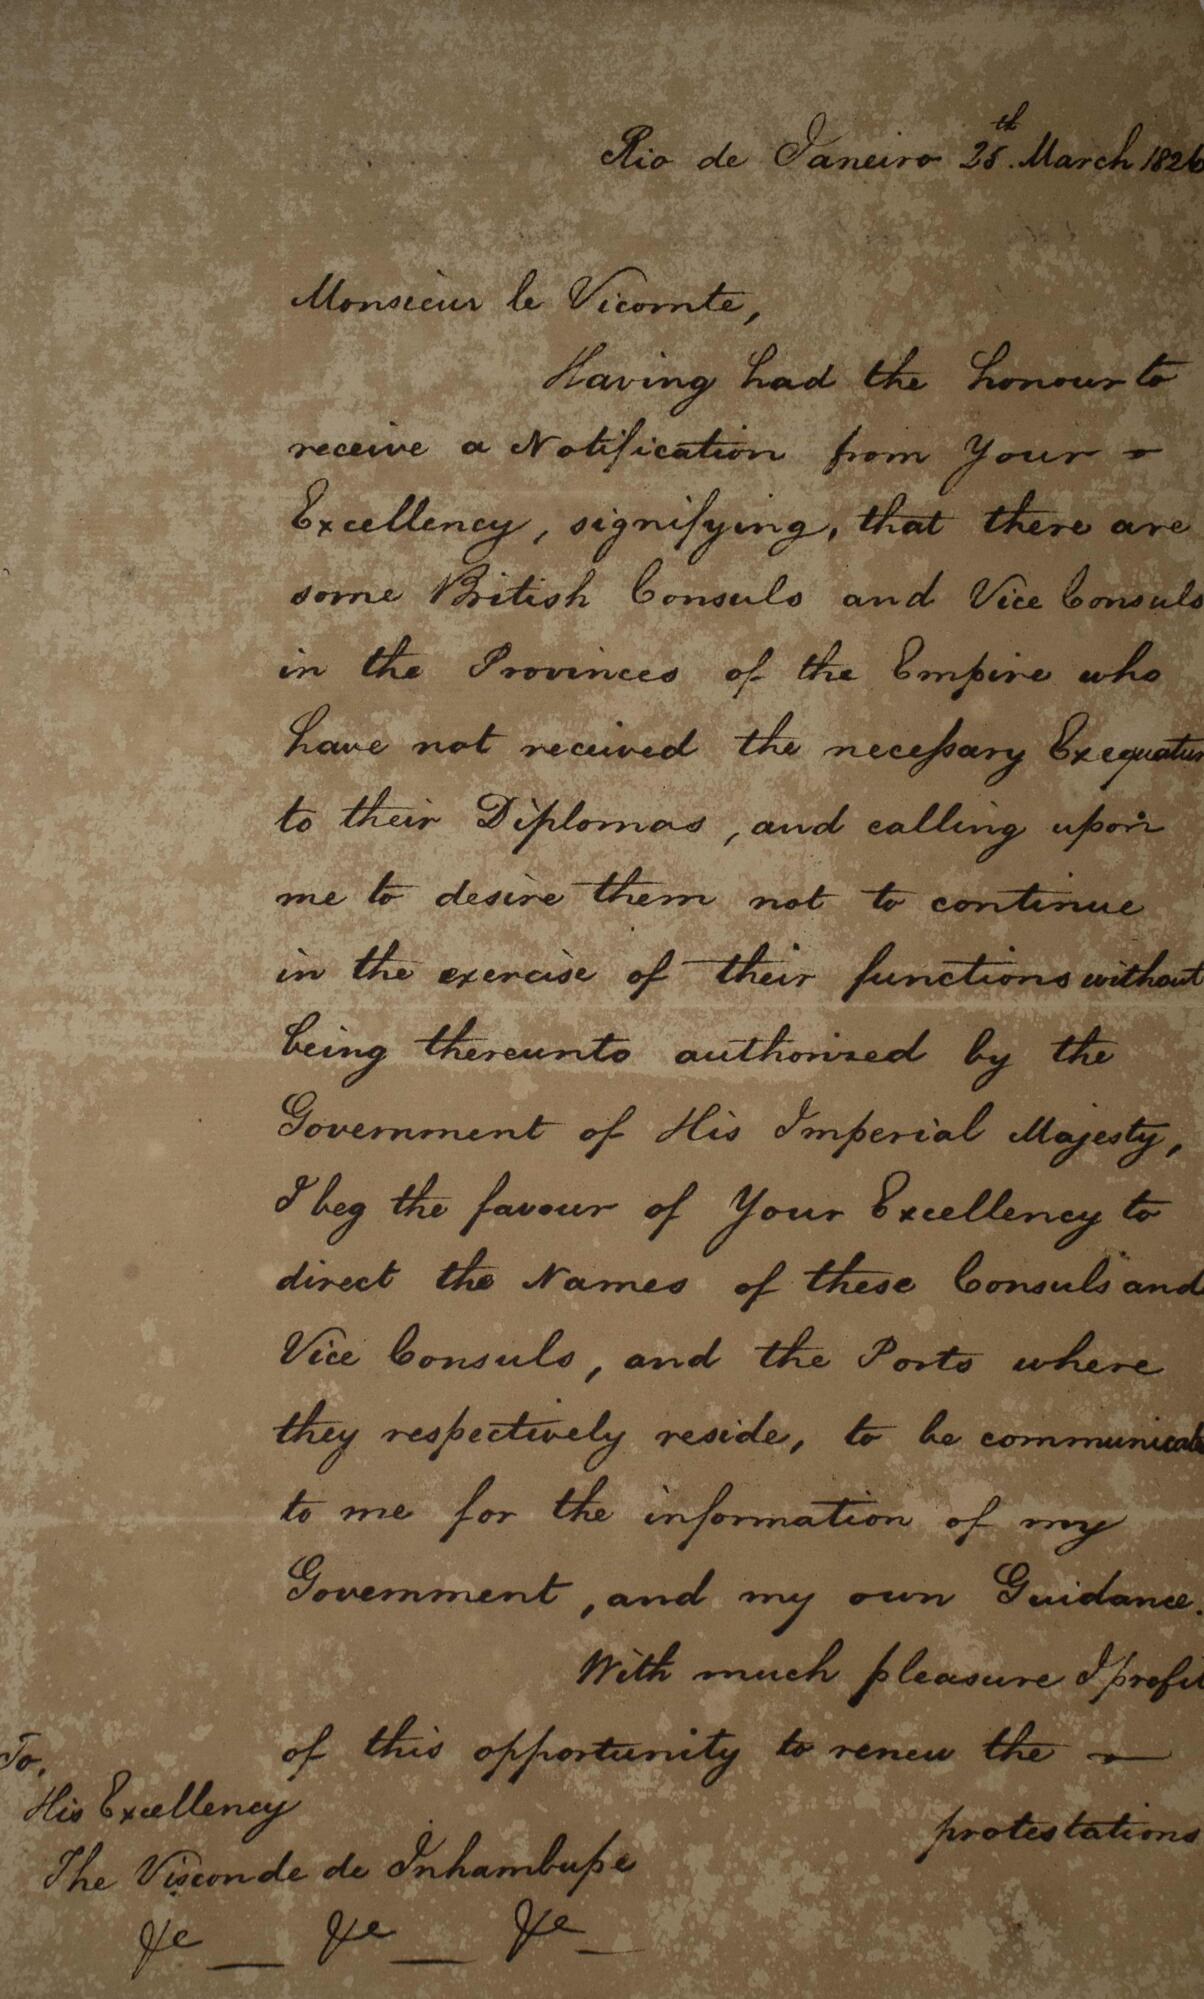 Rio de Janeiro 25th. March 1826
Monsieur le Vicomte,
Having had the honour to
receive a Notification from Your
Excellency, signifying, that there are
some British Consuls and Vice Consuls
in the Provinces of the Empire who
have not received the necessary Exequatur
to their Diplomas, and calling upon
me to desire them not to continue
in the exercise of their functions without
being thereunto authorized by the
Government of His Imperial Majesty,
I beg the favour of Your Excellency to
direct the Names of these Consuls and
Vice Consuls, and the Ports where
they respectively reside, to be communicate
to me for the information of my
Government, and my own Guidance.
With much pleasure I profit
of this opportunity to renew the
protestations
To,
His Excellency
The Visconde de Inhambupe
&c &c &c